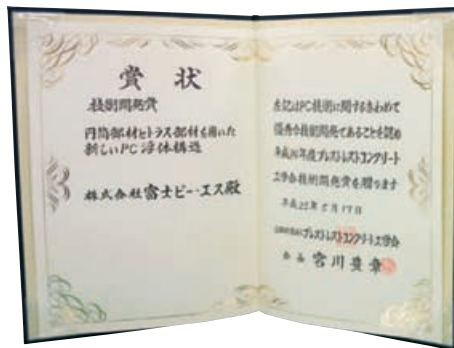 賞状
技術開発賞
円筒部材とトラス部材を用いた
新しいPC浮体構造
株式会社富士ピー・エス殿
左記はPC技術に関するきわめて
優秀な技術開発であることを認め
平成26年度プレストレストコンクリート
工学会技術開発賞を贈ります
平成 年5月19日
プレストレストコンクリート工学会
会長 宮川豊章